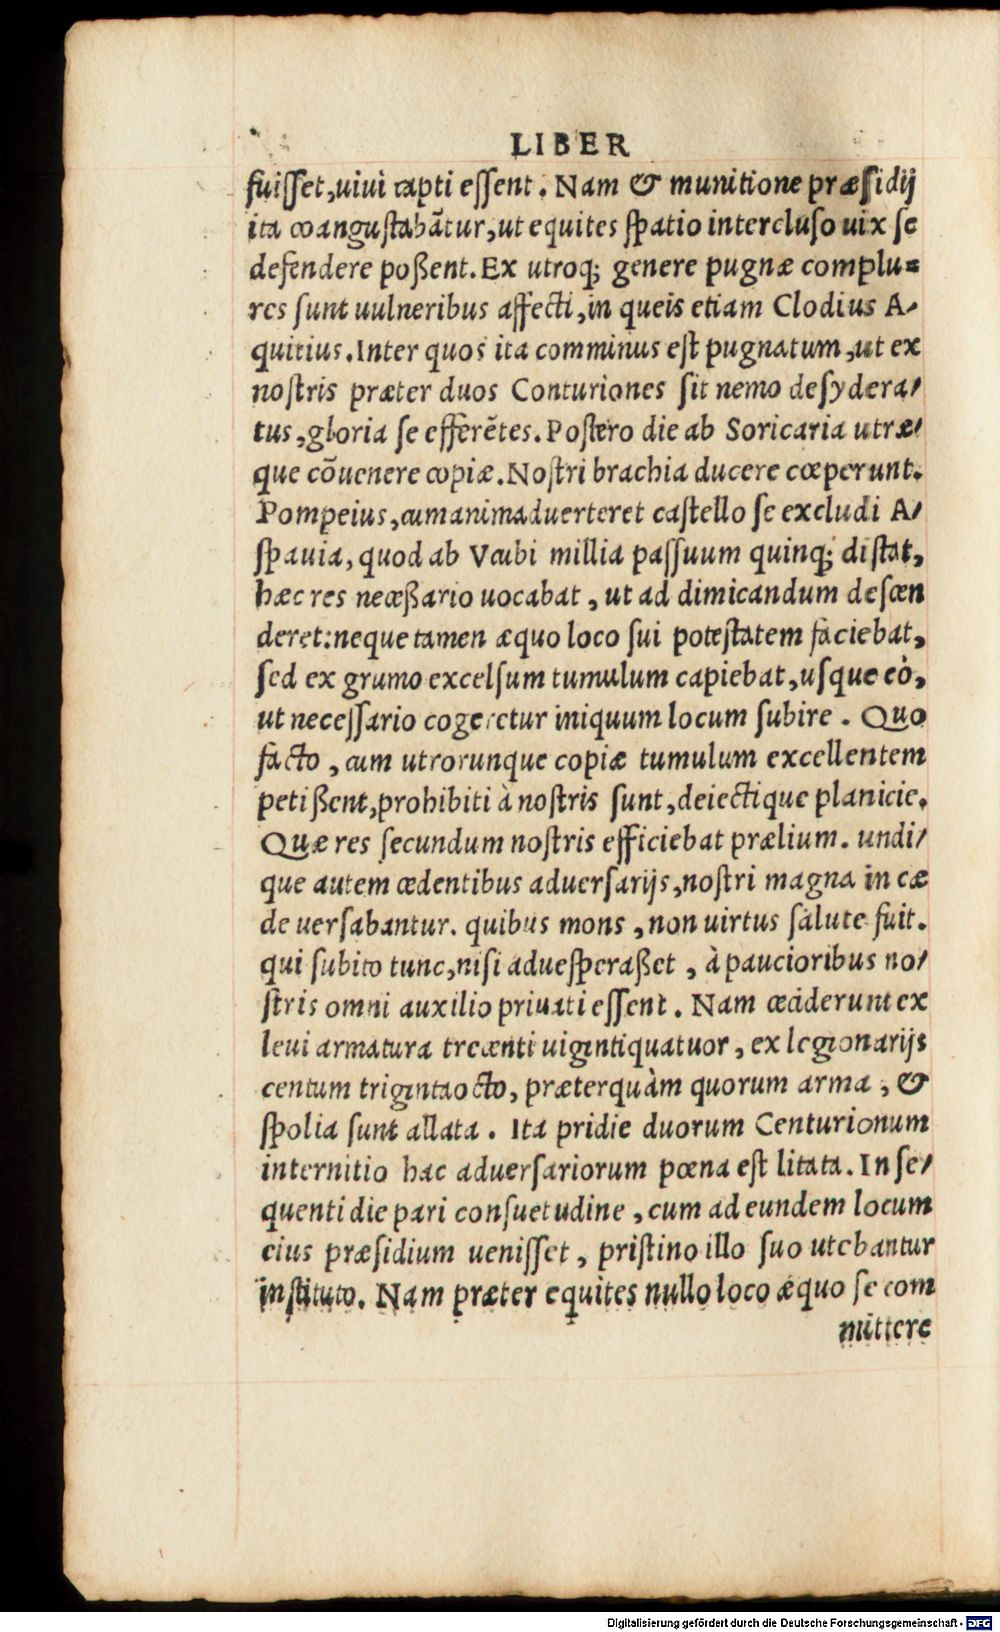 LIBER
fuiſſet,uiui capti eſſent. Nam & munitione præſidij
ita coanguſtabātur,ut equites ſpatio intercluſo uix ſe
defendere poßent. Ex utroq; genere pugnæ complu=
res ſunt uulneribus affecti,in queis etiam Clodius A-
quitius. Inter quos ita comminus eſt pugnatum,ut ex
noſtris præter duos Conturiones ſit nemo deſydera/
tus,gloria ſe efferētes. Poſtero die ab Soricaria utræ/
que cōuenere copiæ. Noſtri brachia ducere cœperunt.
Pompeius,cum animaduerteret caſtello ſe excludi A/
ſpauia, quod ab Vcubi millia paſſuum quinq; diſtat,
hæc res neceßario uocabat, ut ad dimicandum deſcen
deret:neque tamen æquo loco ſui poteſtatem faciebat,
ſed ex grumo excelſum tumulum capiebat,uſque eò,
ut neceſſario cogeretur iniquum locum ſubire. Quo
facto, cum utrorunque copiæ tumulum excellentem
petißent,prohibiti à noſtris ſunt,deiectique planicie.
Quæ res ſecundum noſtris efficiebat prælium. undi/
que autem cedentibus aduerſarijs,noſtri magna in cæ
de uerſabantur. quibus mons, non uirtus ſalute fuit.
qui ſubito tunc,niſi adueſperaßet, à paucioribus no/
ſtris omni auxilio priuati eſſent. Nam ceciderunt ex
leui armatura trecenti uigintiquatuor, ex legionarijs
centum trigintaocto, præterquàm quorum arma, &
ſpolia ſunt allata. Ita pridie duorum Centurionum
internitio hac aduerſariorum pœna eſt litata. In ſe/
quenti die pari conſuetudine, cum ad eundem locum
eius præſidium ueniſſet, priſtino illo ſuo utebantur
inſtituto. Nam præter equites nullo loco æquo ſe com
mittere
Digitalisierung gefördert durch die Deutsche Forschungsgemeinschaft - DFG